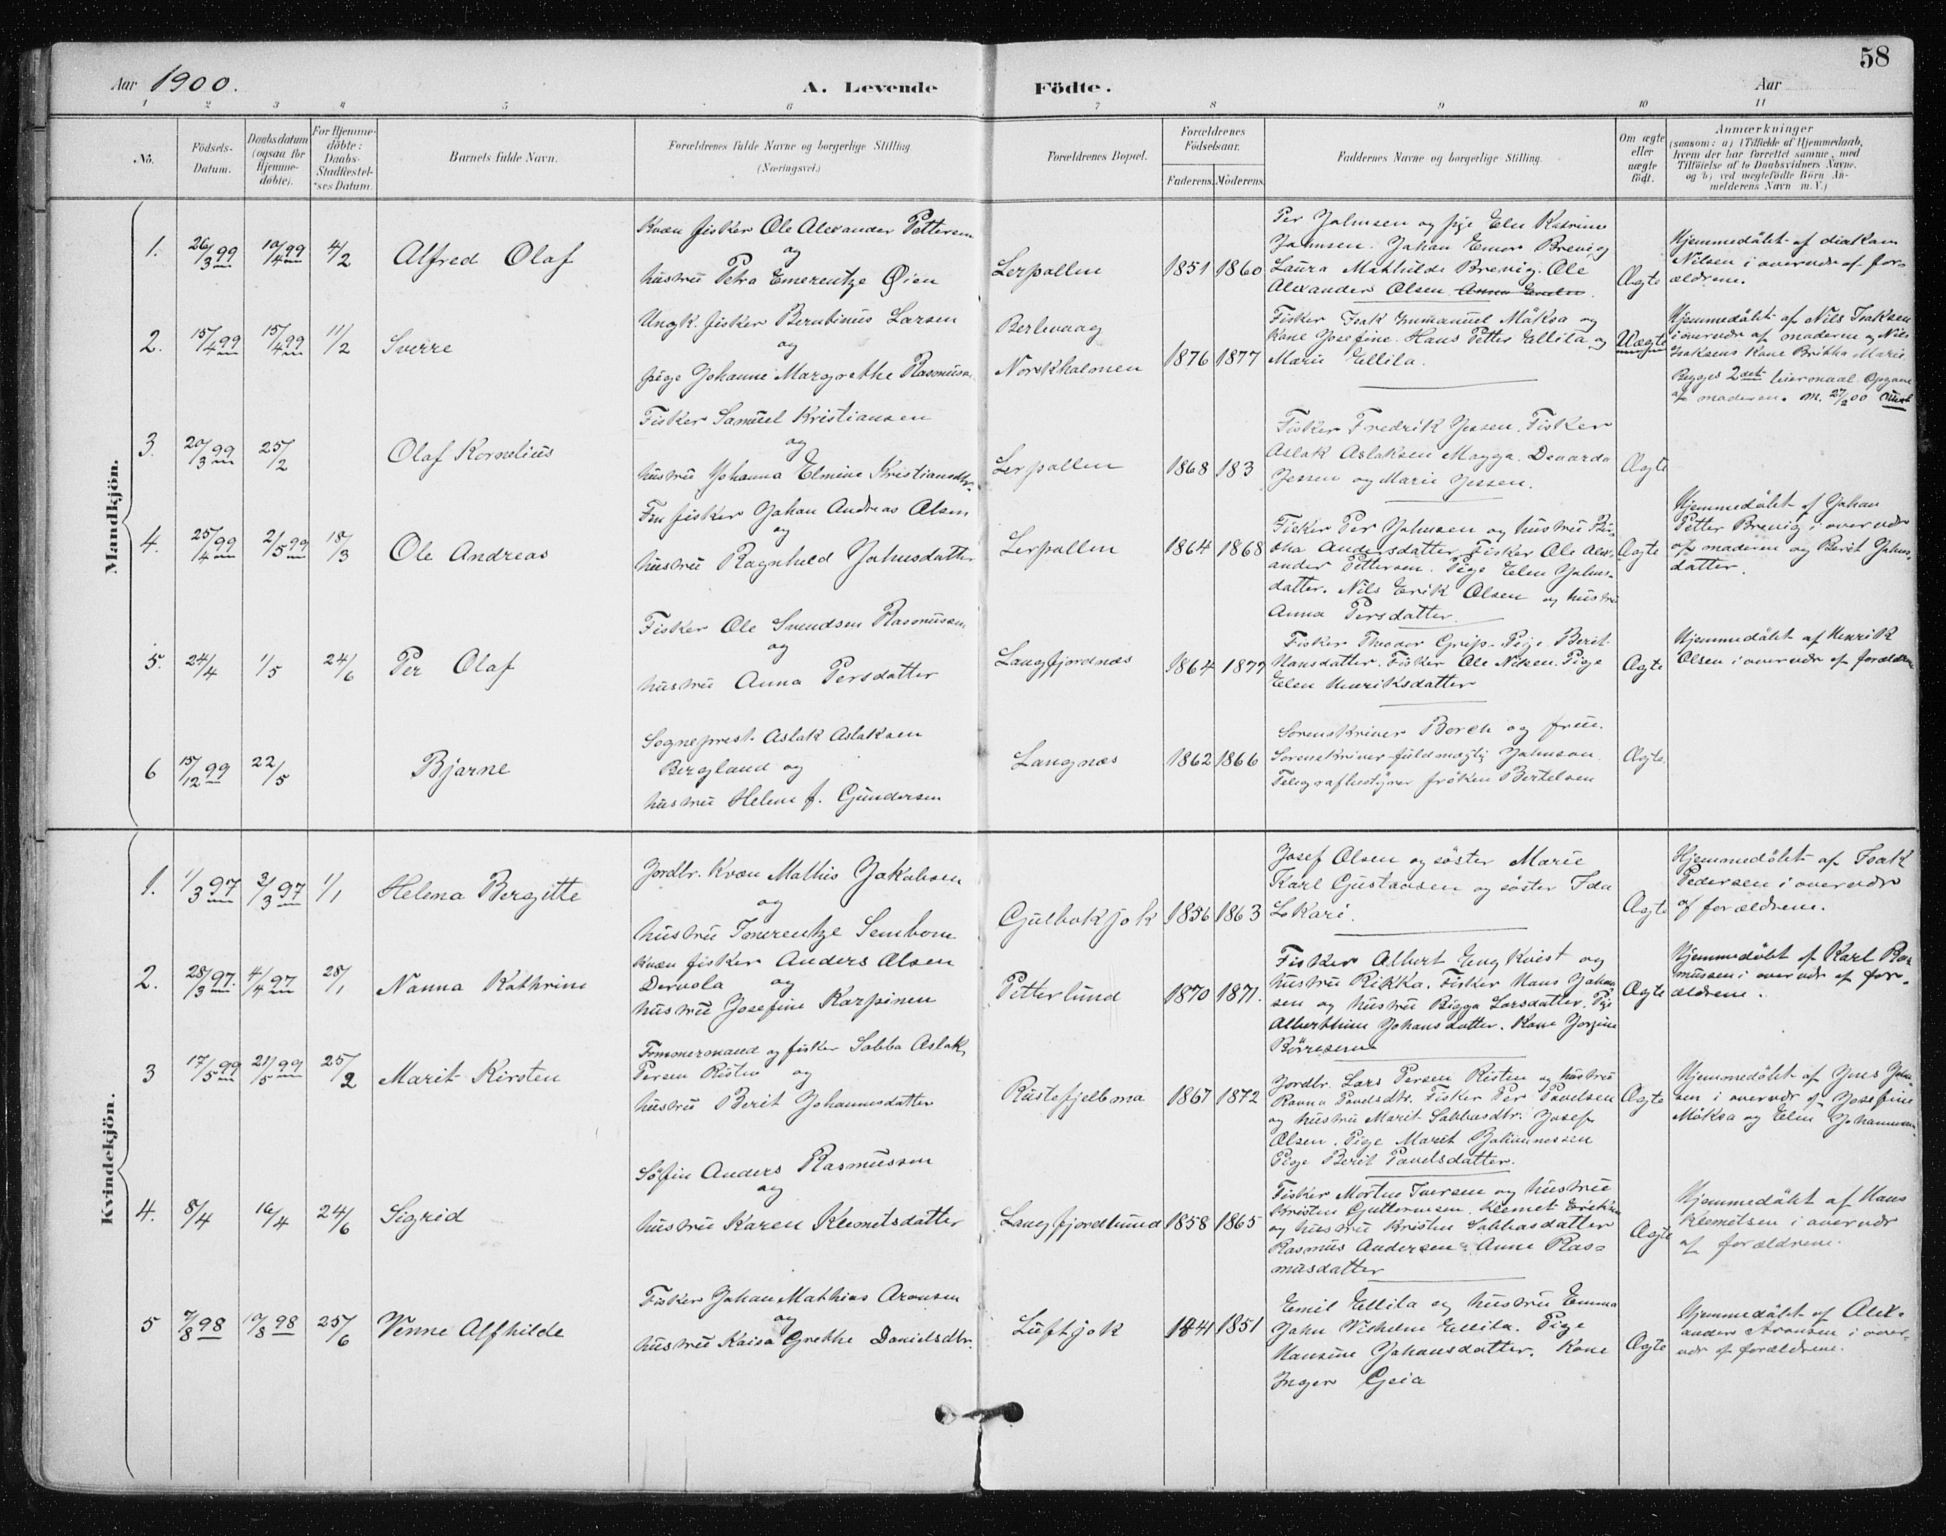 58
Aar 1900. A. Levende Födte. Aar
1 2 3 4 5 6 7 8 9 10 11
No. Födsels-Datum. Daabsdatum (ogsaa for Hjemme-döbte). For Hjemme-döbte: Daabs-Stadfæstel-ses Datum. Barnets fulde Navn. Forældrenes fulde Navne og borgerlige Stilling (Næringsvei.) Forældrenes Bopæl. Forældrenes Födselsaar. Faderens. Moderens. Faddernes Navne og borgerlige Stilling. Om ægte eller uægte födt. Anmærkninger
(saasom: a) i Tilfælde af Hjemmedaab, hvem der har forrettet samme, med Tilföielse af to Daabsvidners Navne, og b) ved uægtefödte Börn An-melderens Navn m. V.)
Mandkjön.
1. 26/3 99 10/4 99 4/2 Alfred Olaf
Kvæn fisker Ole Alexander Pettersen
og
hustru Petra Emerentze Øien
Lerpollen 1851 1860
Per Johnsen og pige Elen Katrine
Johnsen. Johan Emor Brevig
Laura Mathilde Brevig. Ole
Alexander Olsen
Ægte
Hjemmedöbt af diakon
Nilsen i overvær af for-
ældrene.
2. 15/4 99 15/4 99 11/2 Sverre
Ungk. fisker Berntinus Larsen
og
pige Johanne Margrethe Rasmusen
Berlevaag
Norskholmen 1876 1877
Fisker Isak Immanuel Måksa og
Kone Josefine. Hans Petter Ellila og
Marie Ellila.
Uægte
Hjemmedöbt af Nils Isaksen
i overvær af moderen og Nils
Isaksens Kone Britha Marie
Begges 2det leiermaal. Opgave
af moderen. M. 27/2 00
3. 20/3 99 25/2 Olaf Kornelius
Fisker Samuel Kristiansen
og
hustru Johanna Elmine Kristiansdtr.
Lerpollen 1868 183
Fisker Fredrik Jessen. Fisker
Aslak Aslaksen Magga. Devarda
Jessen og Marie Jessen.
Ægte
4. 25/4 99 2/5 99 18/3 Ole Andreas
Fin fisker Johan Andreas Olsen
og
hustru Ragnhild Johnsdatter
Lerpollen 1864 1868
Fisker Per Johnsen og hustru
Andersdatter. Fisker Ole Alex-
ander Pettersen. Pige Elen Johns-
datter. Nils Erik Olsen og hustru
Anna Persdatter.
Ægte
Hjemmedöbt af Johan
Petter Brevig i overvær
af moderen og Berit Johns-
datter.
5. 24/4 1/5 24/6 Per Olaf
Fisker Ole Svendsen Rasmussen
og
hustru Anna Persdatter
Langfjordnæs 1864 1877
Fisker Theodor Grip. Pige Berit
Hansdatter. Fisker Ole Nilsen. Pige
Elen Henriksdatter
Ægte
Hjemmedöbt af Henrik
Olsen i overvær af forældrene
6 15/12 99 22/5 Bjarne
Sogneprest Aslak Aslaksen
Bergland og
hustru Helene f. Gundersen
Langnæs 1862 1866
Sorenskriver Borch og frue.
Sorenskriverfuldmægtig Johnson
Telegrafbestyrer frøken Bertelsen
Ægte.
Kvindekjön.
1. 1/3 97 3/3 97 1/1 Helena Bergitte
Jordbr. Kvæn Mathis Jakobsen
og
hustru Imerentze Sembom
Gulbokjok 1856 1863
Josef Olsen og søster Marie
Karl Gustavsen og søster Ida
Lokari.
Ægte
Hjemmedöbt af Isak
Pedersen i overvær
af forældrene.
2. 28/3 97. 4/4 97 28/1 Nanna Kathrine
Kvæn fisker Anders Olsen
Dervola og
hustru Josefine Karpinen
Petterlund 1870 1871.
Fisker Albert Engkvist og
hustru Rikka. Fisker Hans Johan-
sen og hustru Bigga Larsdatter. Pige
Alberthine Johansdatter. Kone Jorgine
Börresen
Ægte
Hjemmedöbt af Karl Ras-
mussen i overvær af for-
ældrene.
3 17/5 99 21/5 99 25/2 Marit Kirsten
Tømmermand og fisker Sabba Aslak
Persen Risten og
hustru Berit Johannesdatter
Rustefjelbma 1867 1872
Jordbr. Lars Persen Risten og hustru
Ravna Pavelsdtr. Fisker Per Pavelsen
og hustru Marit Sabbasdtr. Josef
Olsen. Pige Marit Johannessen
Pige Berit Pavelsdatter.
Ægte
Hjemmedöbt af Jens John-
sen i overvær af Josefine
Måksa og Elen Johannesen.
4. 8/4 16/4 24/6 Sigrid
Søfin Anders Rasmussen
og
hustru Karen Klemetsdatter
Langfjordbund 1858 1865
Fisker Morten Iversen og hustru
Kristen Guttormsen. Klemet Eriksen
og hustru Kristen Sabbasdatter
Rasmus Andersen. Anne Ras-
musdatter
Ægte
Hjemmedöbt af Hans
Klemetsen i overvær
af forældrene.
5 7/8 98 17/8 98 25/6 Venne Alfhilde
Fisker Johan Mathias Aronsen
og
hustru Kaisa Grethe Danielsdtr.
Luftjok 1841 1851
Emil Ellila og hustru Emma
John Vilhelm Ellila. Pige
Hansine Johansdatter. Kone
Inger Geia
Ægte
Hjemmedöbt af Alex-
ander Aronsen i over-
vær af forældrene.